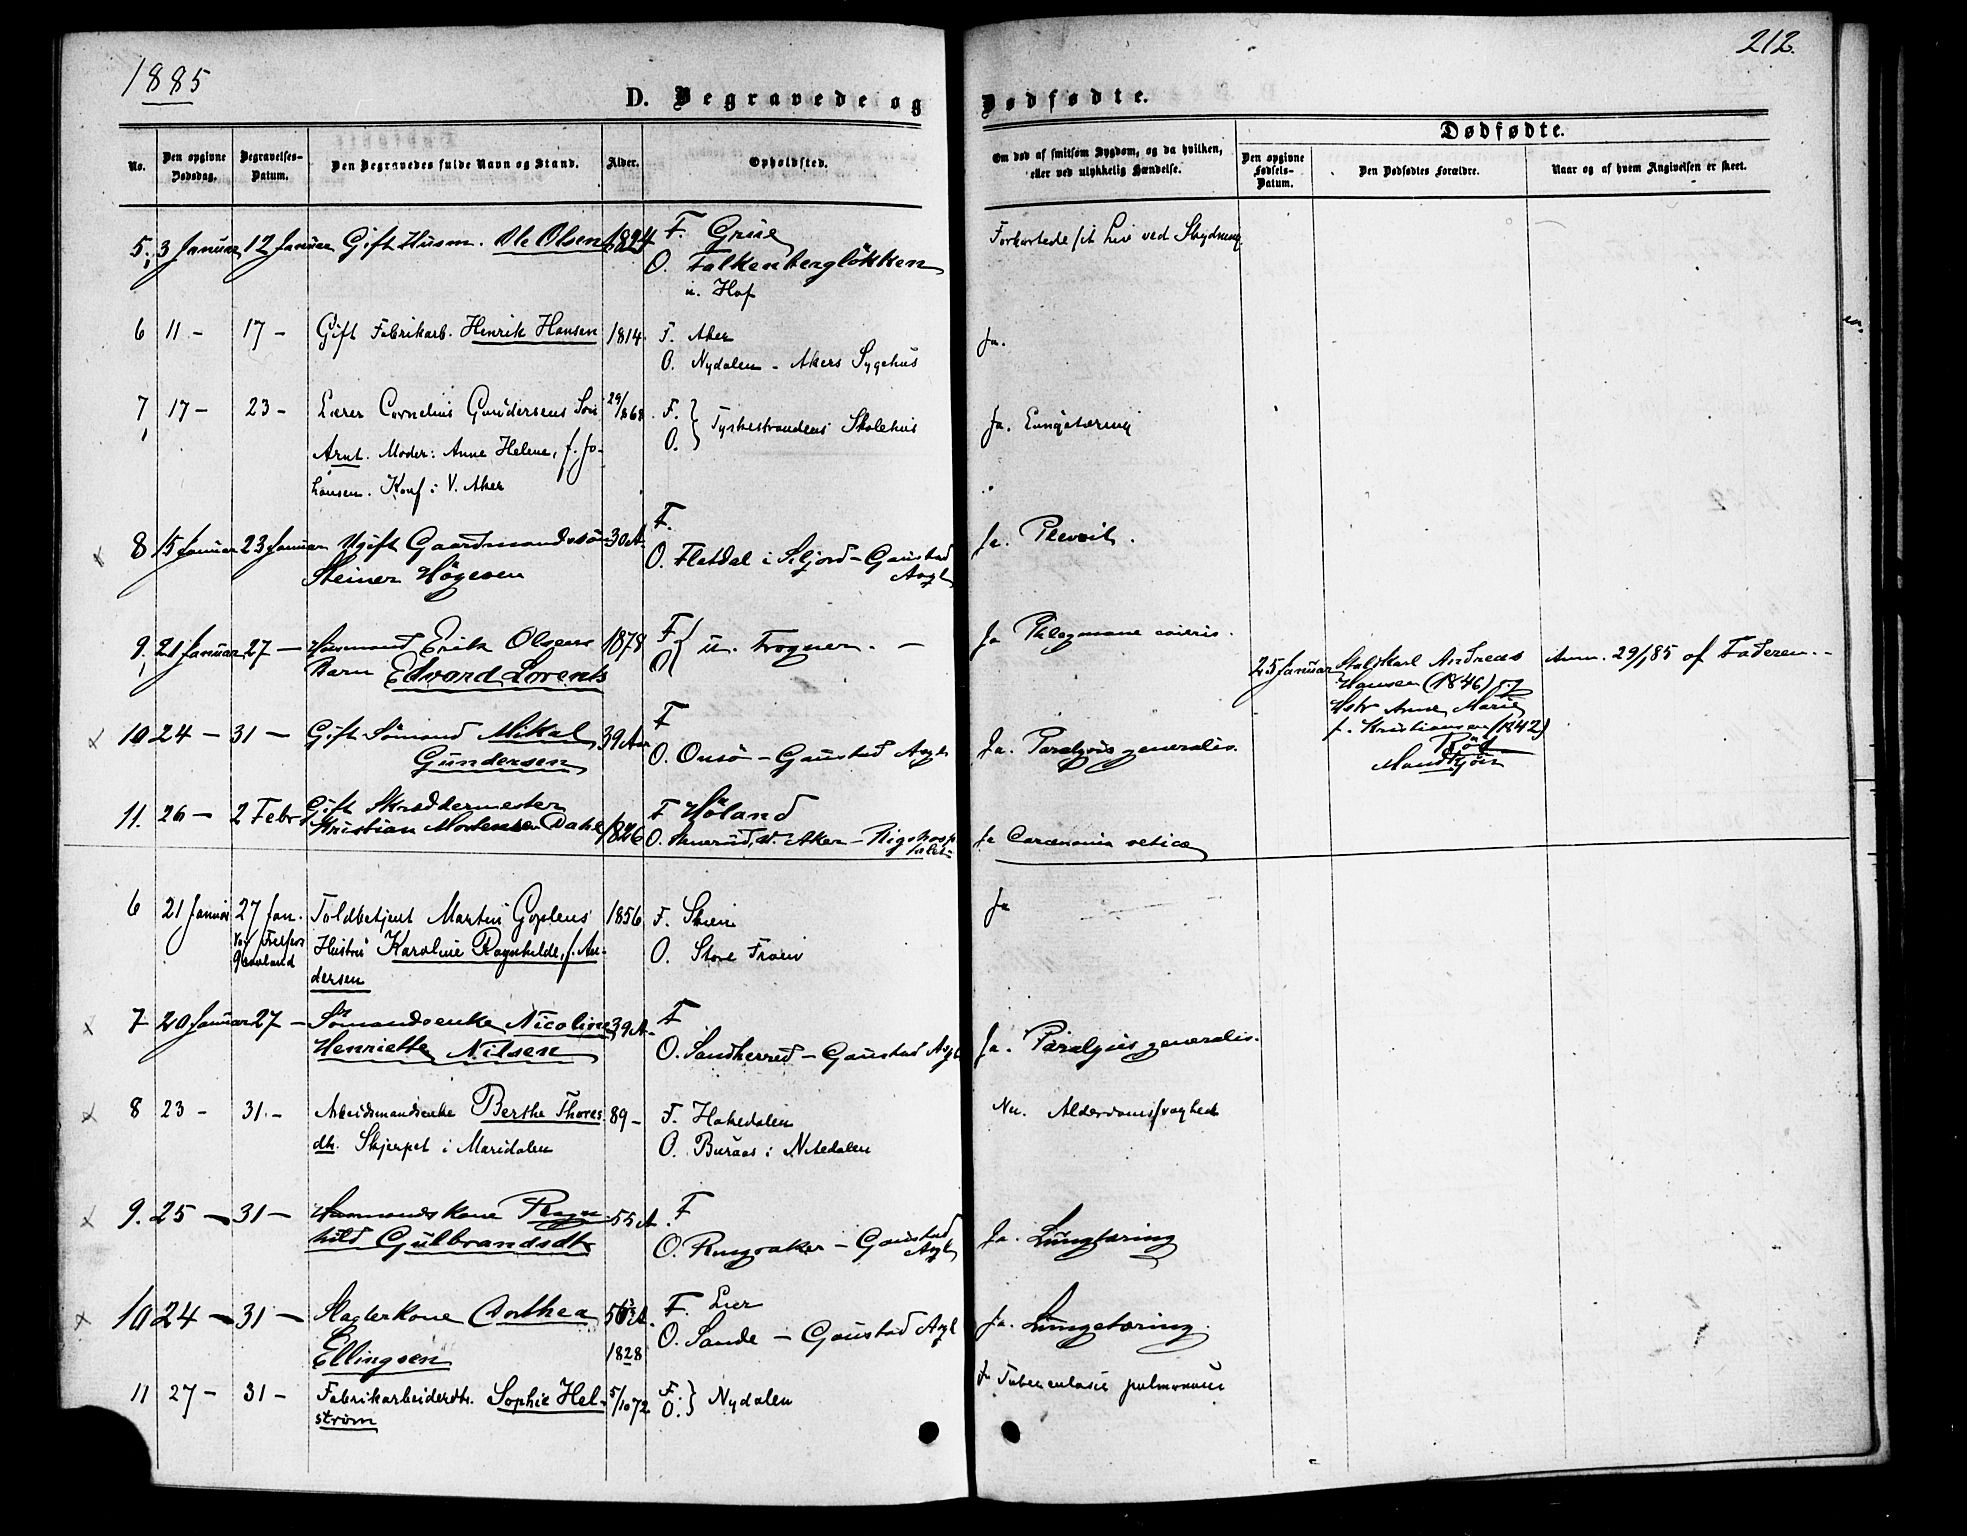 1885
212.
D. Begravede og Dødfødte.
No.
Den opgivne Dødsdag.
Begravelses-Datum.
Den Begravedes fulde Navn og Stand.
Alder.
Opholdsted.
Om død af smitsom Sygdom, og da hvilken, eller ved ulykkelig Hændelse.
Dødfødte.
Den opgivne Fødsels-Datum.
Den Dødfødtes Forældre.
Naar og af hvem Angivelsen er skeet.
5. 3 Januar 12 Januar Gift Husm. Ole Olsen 1824 F. Grue Forkortede sit Liv ved Skydning.
O. Falkenbergløkken
u. Hof
6 11 - 17 - Gift Fabrikarb. Henrik Hansen 1814. F. Aker Ja.
O. Nydalen - Akers Sygehus
7 17 - 23 - Lærer Cornelius Gundersens Søn 29/ 868 F. O. Tyskestrandens Skolehus Ja. Lungetæring
Arnt. Moder: Anne Helene, f. Jo-
hansen. Konf i V. Aker
8 15 Januar 23 Januar Ugift Gaardmandssøn 30 A. F. Ja. Plevrit.
Steiner Høgesen O. Flatdal i Seljord - Gaustad Asyl
9. 21 Januar 27 - Husmand Erik Olsens 1878 F O u. Frogner. - Ja Phlegmone
Barn Edvard Lorents
25 Januar Staldkarl Andreas Anm. 29/1 85 af Faderen. -
Hansen (1846) og
Hstr Anne Marie
f. Kristiansen (1842)
Røa
Mandkjøn
10 24 - 31 - Gift Sömand Mikal 39 Aar F Ja. Paralysis generalis.
Gundersen O. Onsö - Gaustad Asyl
11. 26 - 2 Febr Gift Skræddermester F Höland
Kristian Mortensen Dahl 1826 O. V. Aker - Rigshospitalet Ja Carcinoma
6 21 Januar 27 Jan. Toldbetjent Martin Goplens 1856 F. Skien Ja
Vor Frelsers Gravlund Hustru Karoline Ragnhilde, f. An- O. Store Frøen
dersen
7 20 Januar 27 - Sömandsenke Nicoline 39 A. F Ja. Paralysis generalis.
Henriette Nilsen O. Sandherred - Gaustad Asyl
8 23 - 31 - Arbeidsmandsenke Berthe Thores 89 - F. Hakedalen Nei. Alderdomssvaghed
dtr. Skjerpet i Maridalen O. Buraas i Nitedalen
9. 25 - 31 - Husmandskone Ragn 55 A. F Ja. Lungtæring
hild Gulbrandsdtr O. Ringsaker - Gaustad Asyl
10 24 - 31 - Slagterkone Dorthea 56 A. F. Lier Ja. Lungetæring.
Ellingsen 1828 O. Sande - Gaustad Asyl
11 27 - 31 - Fabrikarbeiderdtr. Sophie Hel- 5/10 72 F. O. Nydalen Ja Tuberculosis pulmonum
strøm